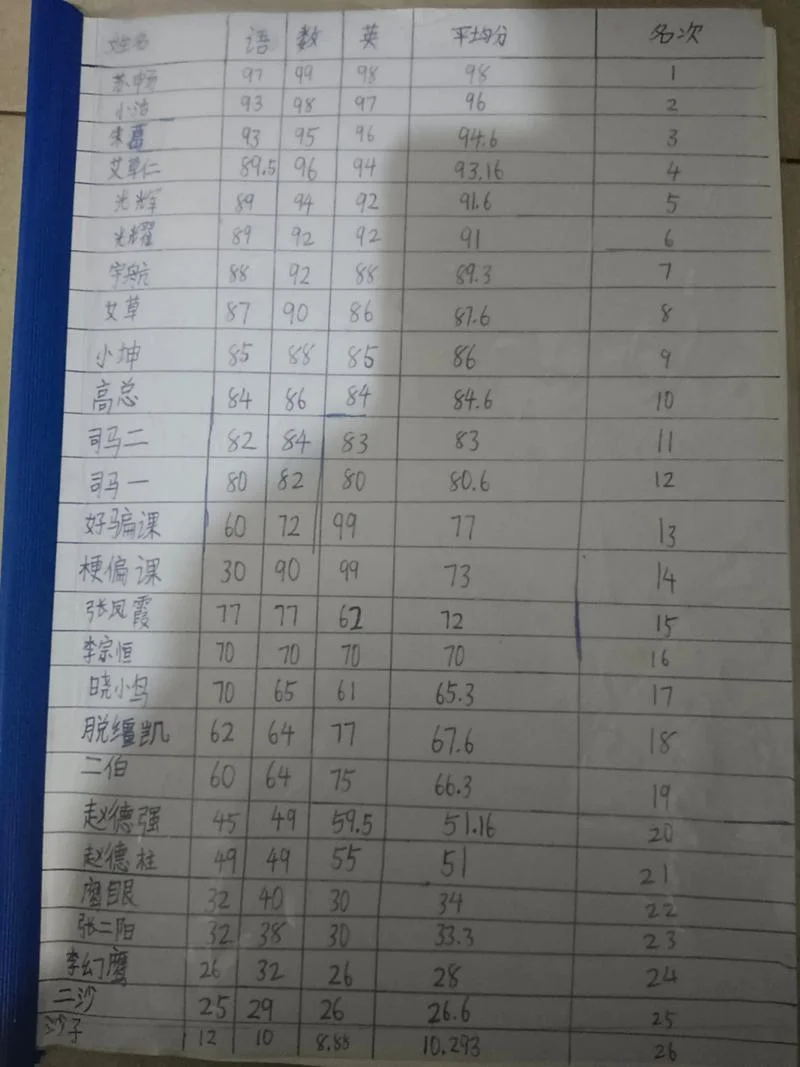 姓名 语 数 英 平均分 名次
苏畅 97 99 98 98 1
小洁 93 98 97 96 2
朱葛 93 95 96 94.6 3
艾草仁 89.5 96 94 93.16 4
光辉 89 94 92 91.6 5
光耀 89 92 92 91 6
宇航 88 92 88 89.3 7
艾草 87 90 86 87.6 8
小坤 85 88 85 86 9
高总 84 86 84 84.6 10
司马二 82 84 83 83 11
司马一 80 82 80 80.6 12
好骗课 60 72 99 77 13
梗偏课 30 90 99 73 14
张凤霞 77 77 62 72 15
李宗恒 70 70 70 70 16
晓小鸟 70 65 61 65.3 17
脱缰凯 62 64 77 67.6 18
二伯 60 64 75 66.3 19
赵德强 45 49 59.5 51.16 20
赵德柱 49 49 55 51 21
鹰眼 32 40 30 34 22
张二阳 32 38 30 33.3 23
李幻鹰 26 32 26 28 24
二沙 25 29 26 26.6 25
沙子 12 10 8.88 10.293 26